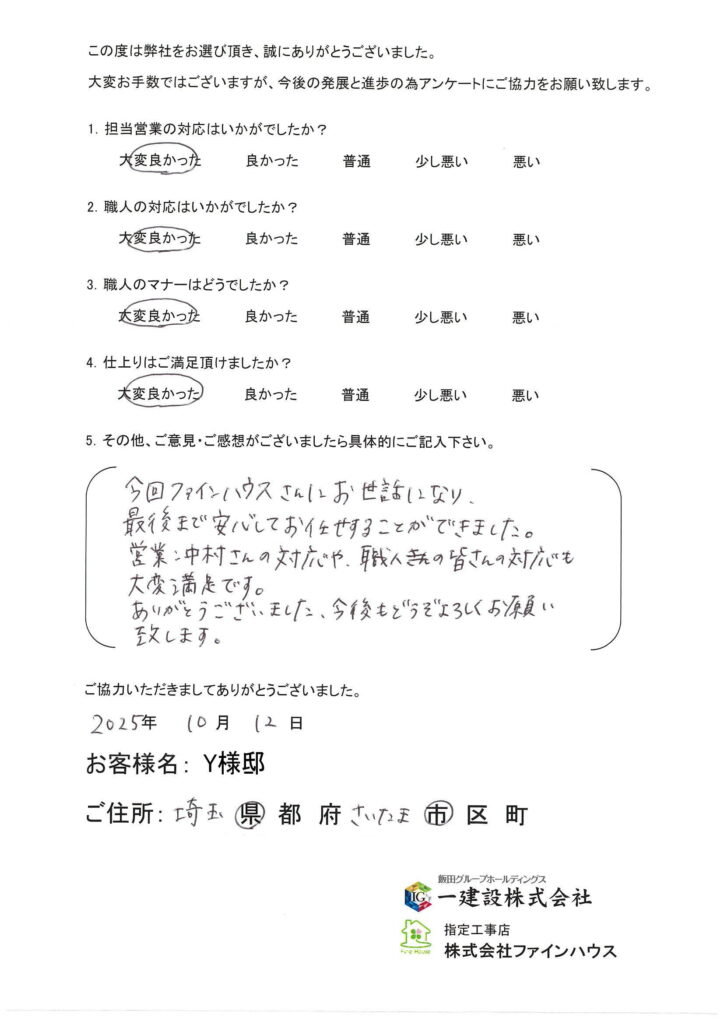 この度は弊社をお選び頂き、誠にありがとうございました。
大変お手数ではございますが、今後の発展と進歩の為アンケートにご協力をお願い致します。
1. 担当営業の対応はいかがでしたか？
大変良かった 良かった 普通 少し悪い 悪い
2. 職人の対応はいかがでしたか？
大変良かった 良かった 普通 少し悪い 悪い
3. 職人のマナーはどうでしたか？
大変良かった 良かった 普通 少し悪い 悪い
4. 仕上りはご満足頂けましたか？
大変良かった 良かった 普通 少し悪い 悪い
5. その他、ご意見・ご感想がございましたら具体的にご記入下さい。
今回ファインハウスさんにお世話になり、
最後まで安心してお任せすることができました。
営業:中村さんの対応や、職人の皆さんの対応も
大変満足です。
ありがとうございました、今後もどうぞよろしくお願い
致します。
ご協力いただきましてありがとうございました。
2025年 10月 12日
お客様名: Y様邸
ご住所: 埼玉 県 都 府 さいたま 市 区 町
飯田グループホールディングス
IG
一建設株式会社
指定工事店
Fine House
株式会社ファインハウス